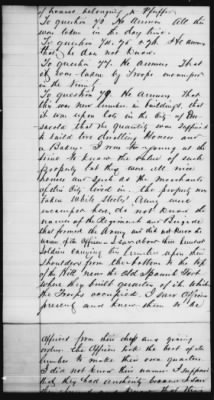 of houses belonging to Pfeiffer
To question 73. He Answers All this
was taken in the day time.
To question 74. 75. & 76. He answers
that he does not know.
To question 77. He Answers That
it was taken by Troops encamped
in the vicinity
To question 78. He Answers, That
this was new lumber in buildings, that
it was upon lots in the City of Pen-
sacola that the quantity was sufficient
to build five dwelling Houses and
a Bakery. I was too young at the
time to know the value of such
Property but they were all nice
houses and such as the Merchants
of this City lived in. the property was
taken while the States' Army were
encamped here, do not know the
names of the Regiments and Brigades
that formed the Army and did not know the
names of the Officers. I saw about three hundred
Soldiers carrying this Lumber upon their
Shoulders from the bottom to the top
of the Hill near the Old Spanish Fort
where they built quarters of it which
the Troops occupied. I saw Officers
present and knew them to be
Officers from their dress and giving
orders. The Officers took the best of the
lumber to make their own quarters.
I did not know their names I suppose
that they had authority because I saw